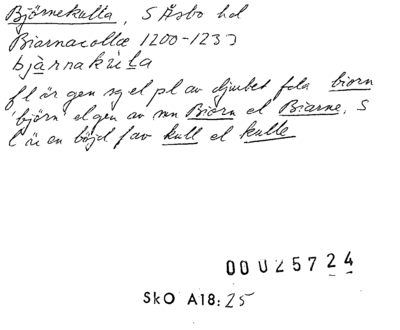 Björnekulla, S Åsbo hd
Biarnacollæ 1200-1233
bjàrnakúla
fl är gen sg el pl av djurbet fda biorn
'björn' el gen av mn Biorn el Biarne. S
l är en böjd f av kull el kulle
00025724
SkO A18:25